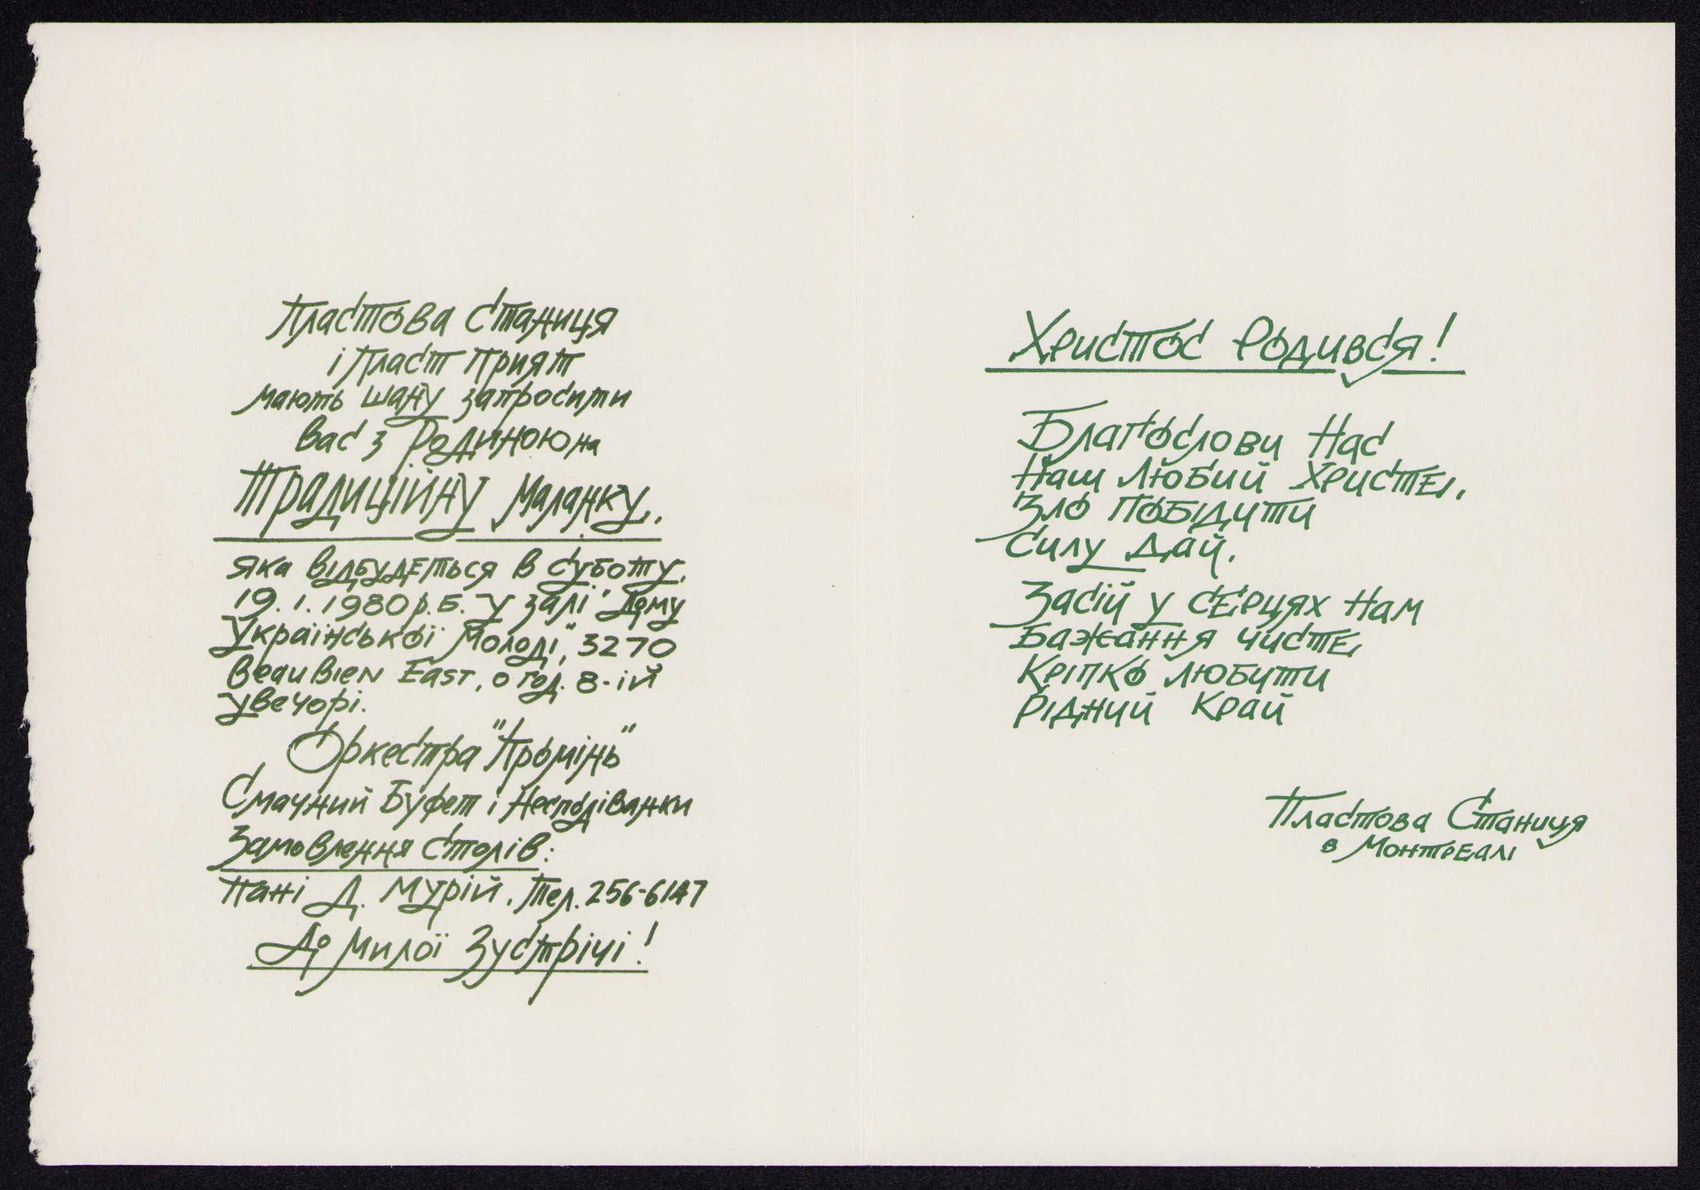 Пластова Станиця
і Пласт Прият
мають шану запросити
Вас з Родиною на
Традиційну Маланку,
яка відбудеться в суботу,
19. 1. 1980 р.Б. у залі "Дому
Української Молоді", 3270
Beaubien East, о год. 8-ій
увечорі.
Оркестра "Промінь"
Смачний Буфет і Несподіванки
Замовлення столів:
Пані Д. Мурій, тел. 256-6147
До милої Зустрічі!
Христос Родився!
Благослови Нас
Наш Любий Христе,
Зло Побідити
Силу Дай.
Засій у сЄрцях Нам
Бажання чисте
Кріпко любити
Рідний Край
Пластова Станиця
в Монтреалі